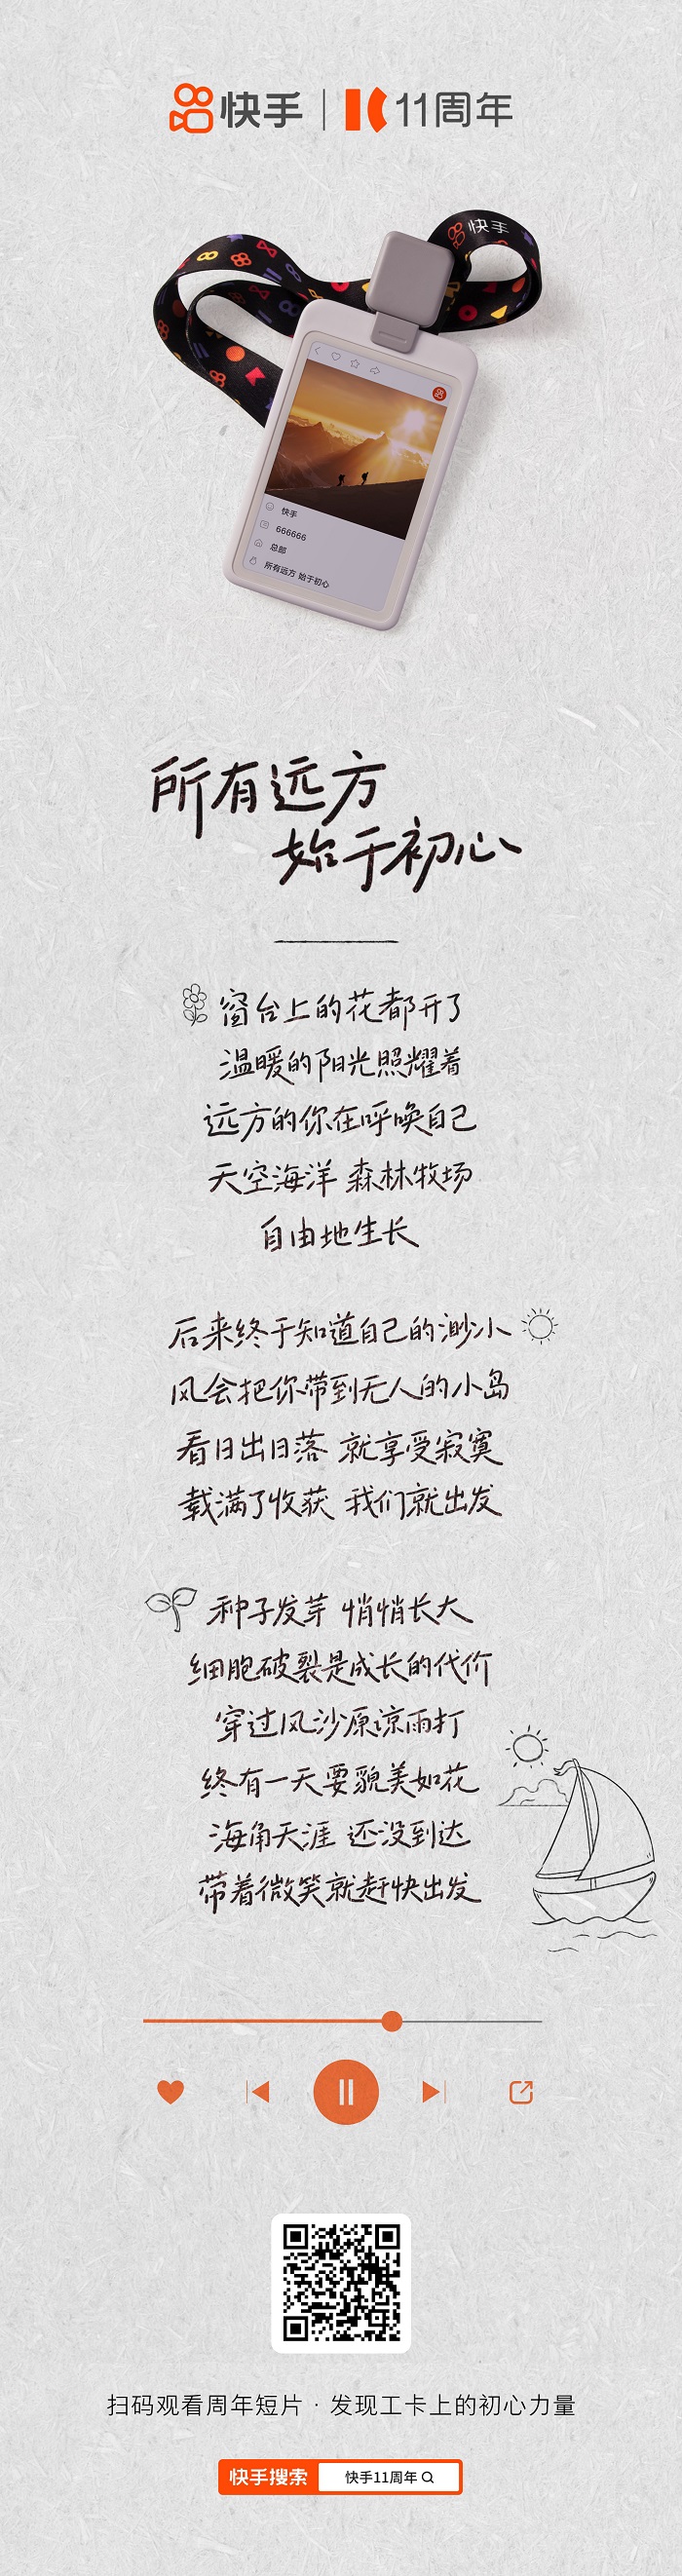 快手 | 11周年
快手
快手
666666
总部
所有远方 始于初心
所有远方
始于初心
窗台上的花都开了
温暖的阳光照耀着
远方的你在呼唤自己
天空海洋 森林牧场
自由地生长
后来终于知道自己的渺小
风会把你带到无人的小岛
看日出日落 就享受寂寞
载满了收获 我们就出发
种子发芽 悄悄长大
细胞破裂是成长的代价
穿过风沙原谅雨打
终有一天要貌美如花
海角天涯 还没到达
带着微笑就赶快出发
扫码观看周年短片 · 发现工卡上的初心力量
快手搜索 快手11周年